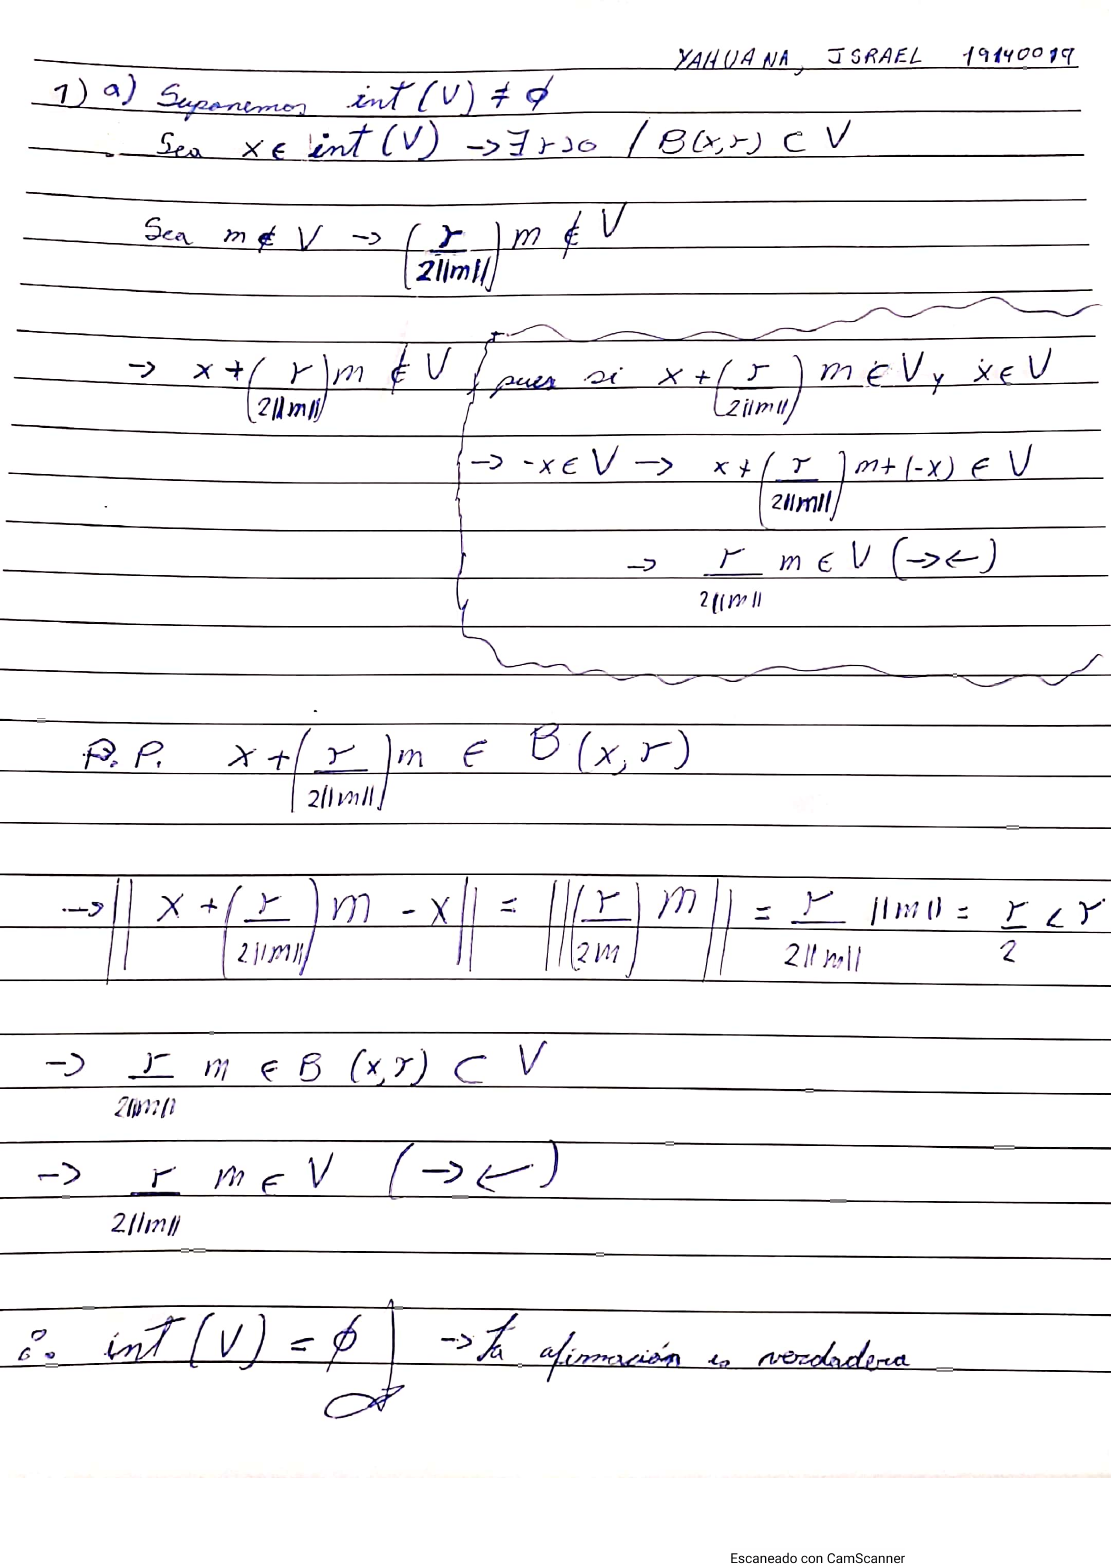 YAHUANA, ISRAEL 19140019
1) a) Suponemos int (V) ≠ ϕ
Sea x ∈ int (V) → ∃ r > 0 / B(x, r) ⊂ V
Sea m ∉ V → (r / 2||m||) m ∉ V
→ x + (r / 2||m||) m ∉ V pues si x + (r / 2||m||) m ∈ V y x ∈ V
→ -x ∈ V → x + (r / 2||m||) m + (-x) ∈ V
→ r / 2||m|| m ∈ V (→←)
P. P. x + (r / 2||m||) m ∈ B (x, r)
→ || x + (r / 2||m||) m - x || = || (r / 2m) m || = r / 2||m|| ||m|| = r / 2 < r
→ r / 2||m|| m ∈ B (x, r) ⊂ V
→ r / 2||m|| m ∈ V (→←)
∴ int (V) = ϕ → La afirmación es verdadera
Escaneado con CamScanner